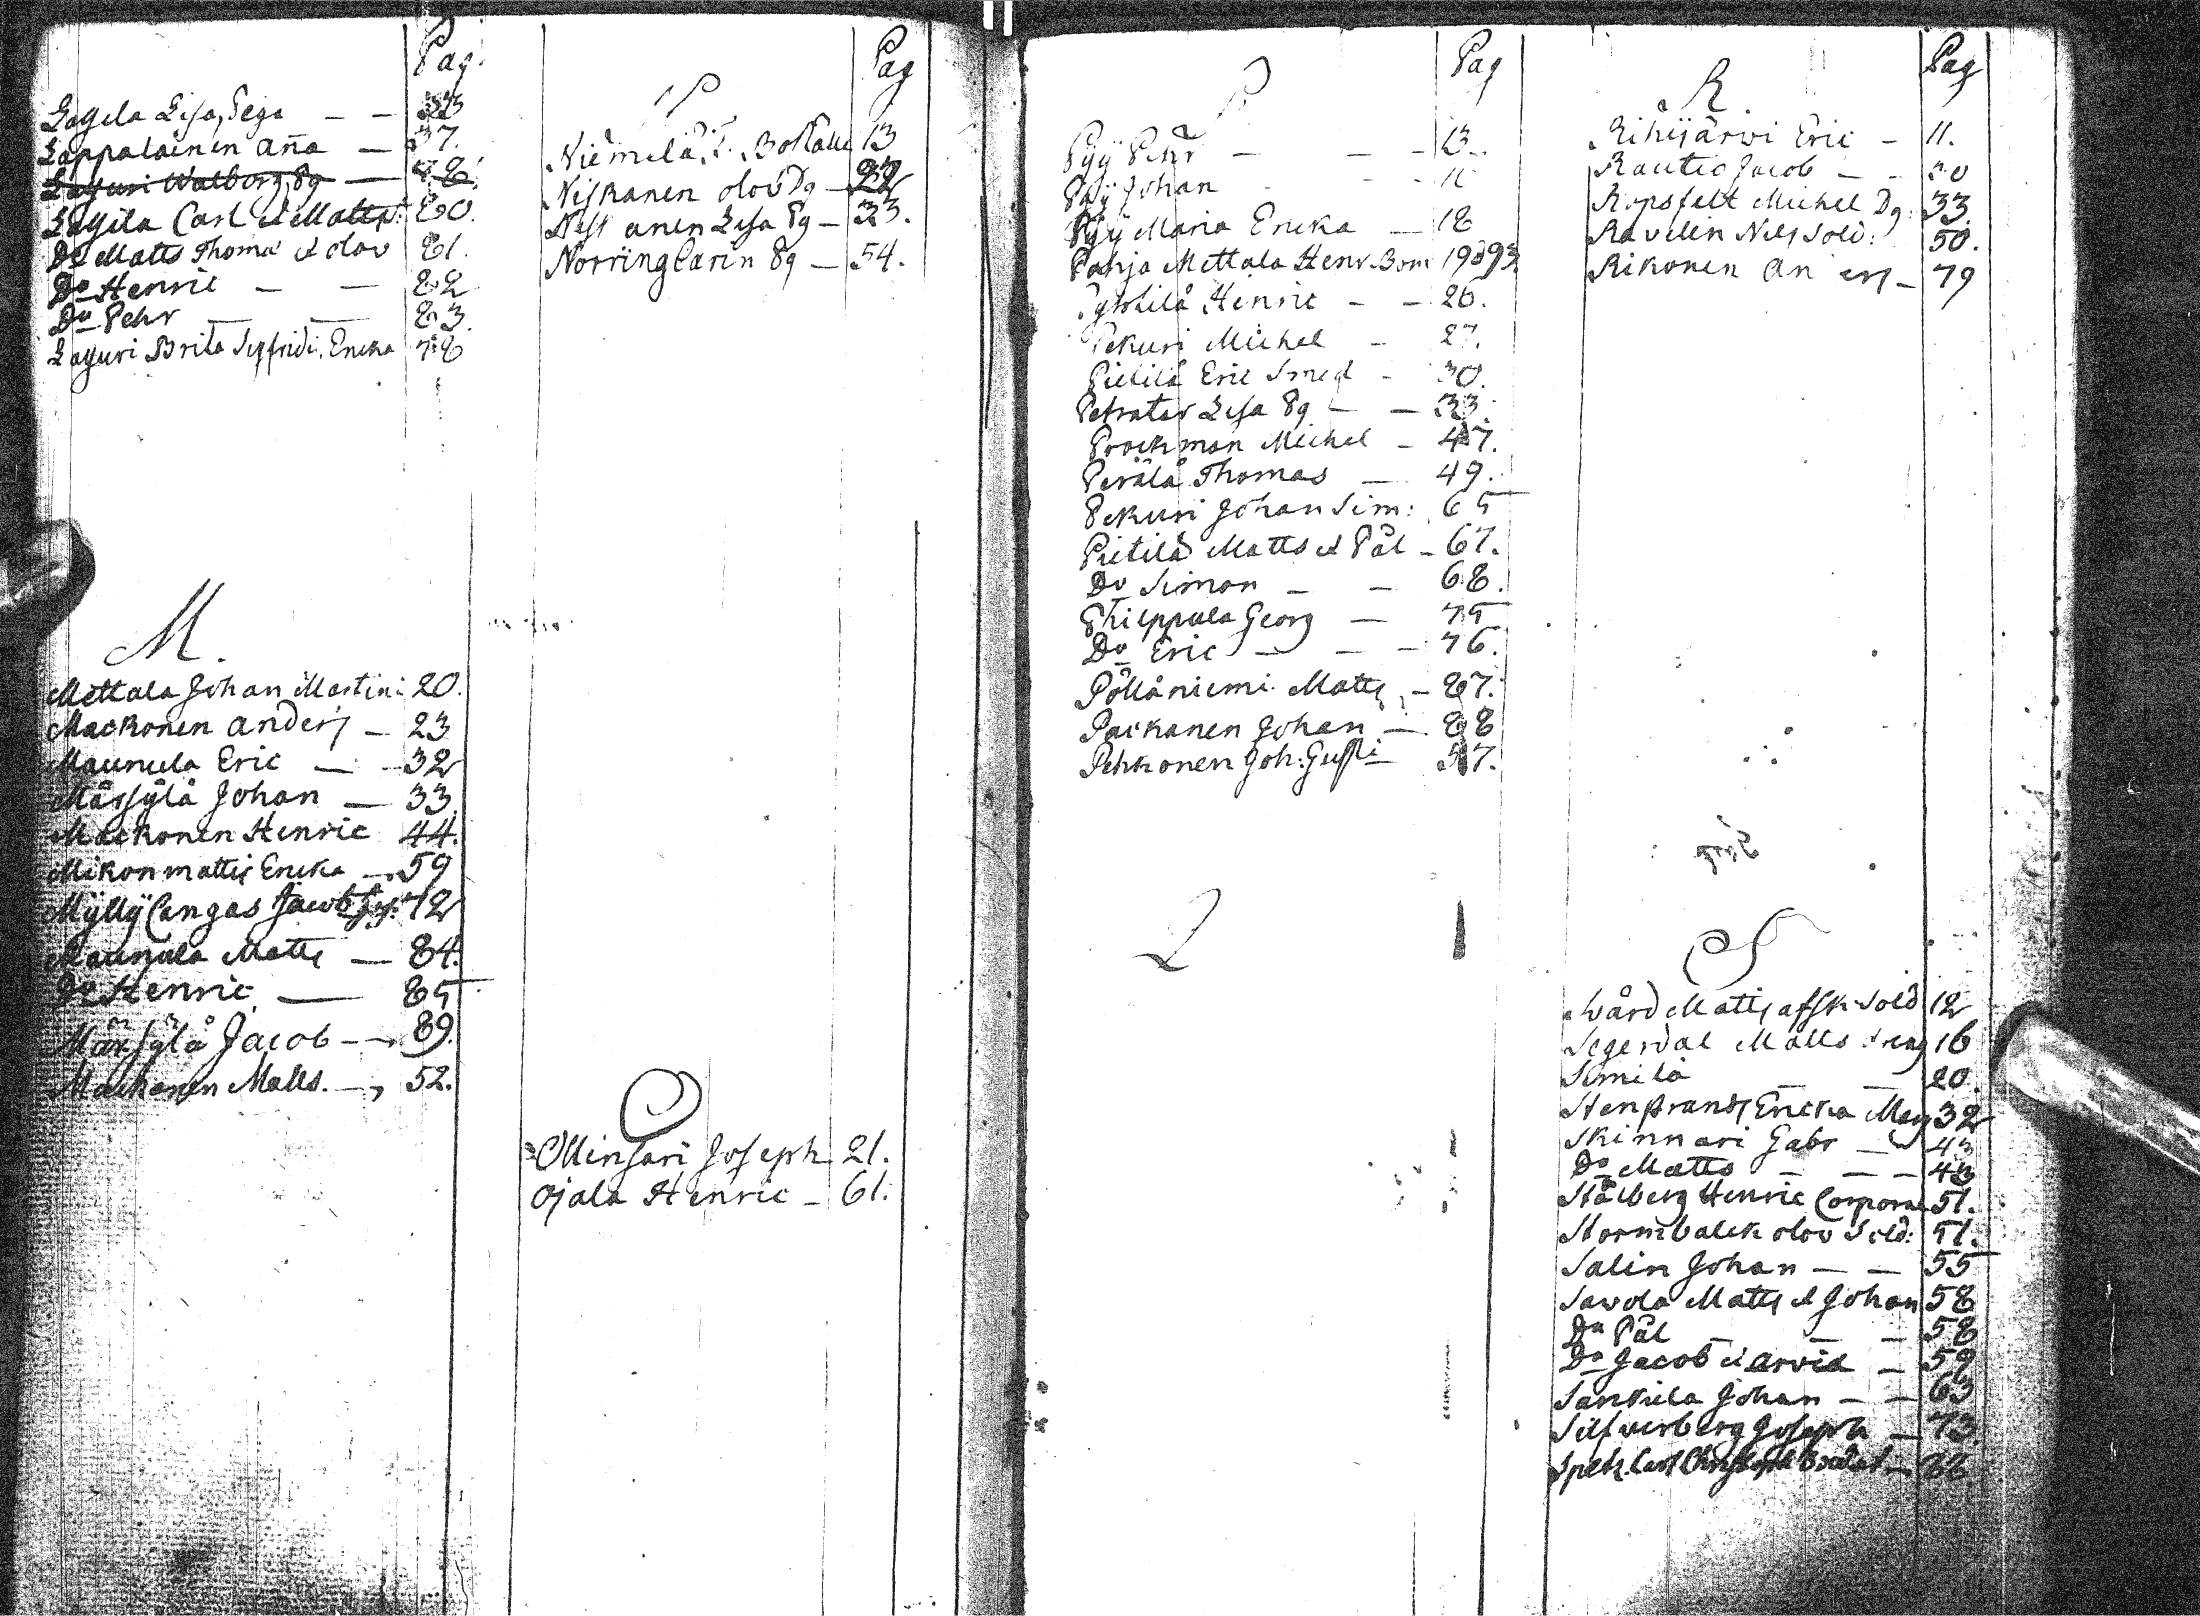 Pag.
Lagila Lisa, Pega — — 33
Lappalainen Aña — 37.
Laguri Walborg, Pg — 78.
Lagila Carl et Matts: 80.
Do Matts Thomæ et Olov 81.
Do Henric — — 82
Do Pehr — — 83.
Laguri Brita Sigfridi, Ericka 78
M.
Mettala Johan Martini 20.
Mackonen Anders — 23
Maunula Eric — — 32
Märsylä Johan — 33
Mackonen Henric 44.
Mikonmattis Ericka — 59
Myllycangas Jacob 72
Maunula Matts — 84.
Do Henric — 85
Märsylä Jacob — 89.
Mackonen Matts. — 52.
Pag
N
Niemelä 13
Niskanen Olov Dg — 32
Niskanen Lisa Pg — 33.
Norring Carin Pg — 54.
O
Ollinsari Joseph 21.
Ojala Henric — 61.
Pag
P
Pyy Pehr — — — 13.
Pyy Johan
Pyy Maria Ericka — 18
Pahja Mettala Henr. 19
Henric — — 26.
Pekuri Michel — 27.
Pietilä Eric Smed — 30.
Lisa Pg — — 33.
Prockman Michel — 47.
Perälä Thomas — 49.
Pekuri Johan Sim: 65
Pietilä Matts et Pål — 67.
Do Simon — — 68.
Philppula Georg — 75
Do Eric — — — 76.
Pöllåniemi Matts — 87.
Packanen Johan — 88
Pehkonen Joh: 57.
Q
Pag
R.
Rihijärwi Eric — 11.
Rautio Jacob — — 20
Ropsfelt Michel Dg: 33.
Ravelin Nils Sold: 50.
Rikonen An ers — 79
S
Swärd Matts afsk. Sold 12
Segerdal Matts 16
Similä — — 20.
Stenstrand Ericka 32
Skinnari Gabr — 43
Do Matts — — — 43
Stålberg Henric Corporal 51.
Stormbalck Olov Sold: 51.
Salin Johan — — 55
Savola Matts et Johan 58
Do Pål — — — 58
Do Jacob et Arvid — 59
Sankila Johan — — 63
Silfverberg Joseph — 73.
Carl Christoph — 88